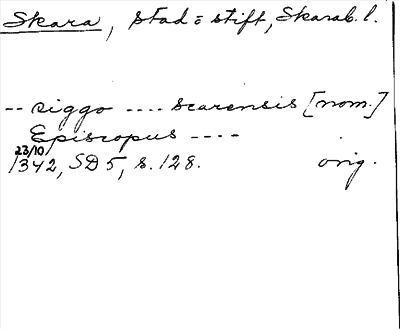 Skara, stad = stift, Skarab. l.
-- siggo .... scarensis [nom.]
Episcopus ----
23/10
1342, SD 5, s. 128. orig.